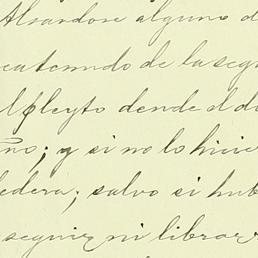 Alsandose alguno d
de la seg
el pleyto dende el d
no; y si no lo hicie
; salvo si hub
seguir, ni librar